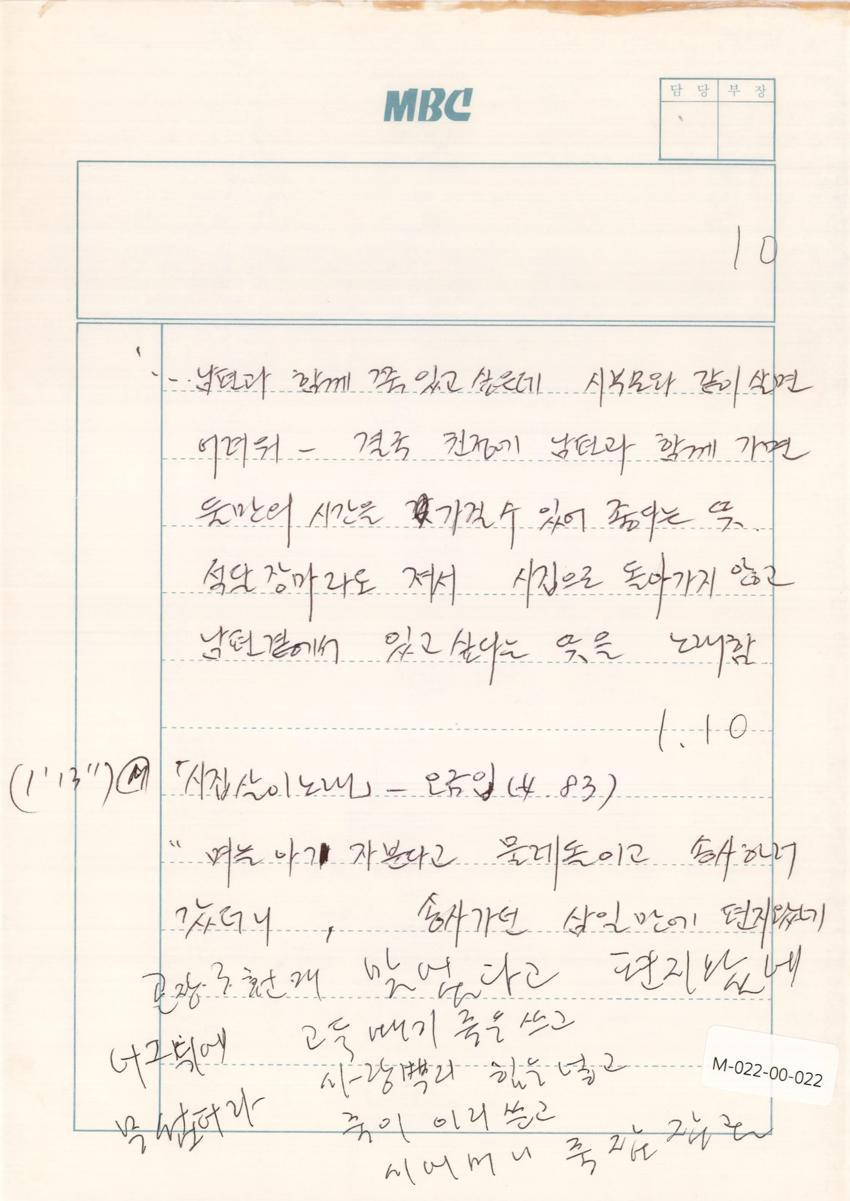 MBC
담당 부장
10
남편과 함께 꼭 있고 싶은데 시부모와 같이 살면
어려워 - 결국 친정에 남편과 함께 가면
둘만의 시간을 가질 수 있어 좋다는 뜻.
석달 장마라도 져서 시집으로 돌아가지 않고
남편곁에서 있고 싶다는 뜻을 노래함
1.10
(1'13") 「시집살이노래」 - 오금입 (4.83)
" 며늘아기 자분다고 물레돌이고 송사하러
갔더니, 송사가던 삼일만에 편지왔네
맡없다고 편지왔네
고둑때기 죽은 쓰고
사랑뿌리 힘는 넣고
죽이 이리 쓰고
시어머니 죽
M-022-00-022